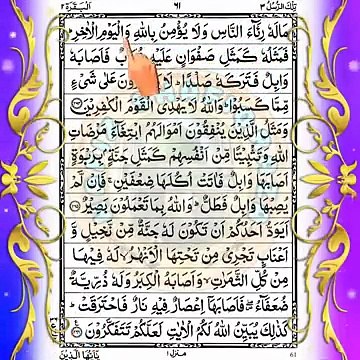 تِلْكَ الرُّسُلُ ٣ ٦١ اَلْبَقَرَة ٢
مَالَهٗ رِئَآءَ النَّاسِ وَلَا يُؤْمِنُ بِاللّٰهِ وَالْيَوْمِ الْاٰخِرِؕ
فَمَثَلُهٗ كَمَثَلِ صَفْوَانٍ عَلَيْهِ فَاَصَابَهٗ
وَابِلٌ فَتَرَكَهٗ صَلْدًاؕ لَا عَلٰى شَىْءٍ
مِّمَّا كَسَبُوْاؕ وَاللّٰهُ لَا يَهْدِى الْقَوْمَ الْكٰفِرِيْنَ
وَمَثَلُ الَّذِيْنَ يُنْفِقُوْنَ اَمْوَالَهُمُ ابْتِغَآءَ مَرْضَاتِ
اللّٰهِ وَتَثْبِيْتًا مِّنْ اَنْفُسِهِمْ كَمَثَلِ جَنَّةٍۢ بِرَبْوَةٍ
اَصَابَهَا وَابِلٌ فَاٰتَتْ اُكُلَهَا ضِعْفَيْنِۚ فَاِنْ لَّمْ
يُصِبْهَا وَابِلٌ فَطَلٌّؕ وَاللّٰهُ بِمَا تَعْمَلُوْنَ بَصِيْرٌ
اَيَوَدُّ اَحَدُكُمْ اَنْ تَكُوْنَ لَهٗ جَنَّةٌ مِّنْ نَّخِيْلٍ وَّ
اَعْنَابٍ تَجْرِىْ مِنْ تَحْتِهَا الْاَنْهٰرُۙ لَهٗ فِيْهَا
مِنْ كُلِّ الثَّمَرٰتِۙ وَاَصَابَهُ الْكِبَرُ وَلَهٗ ذُرِّيَّةٌ
ضُعَفَآءُۖ فَاَصَابَهَاۤ اِعْصَارٌ فِيْهِ نَارٌ فَاحْتَرَقَتْؕ
كَذٰلِكَ يُبَيِّنُ اللّٰهُ لَكُمُ الْاٰيٰتِ لَعَلَّكُمْ تَتَفَكَّرُوْنَ
يٰۤاَيُّهَا الَّذِيْنَ منزل ١ 61